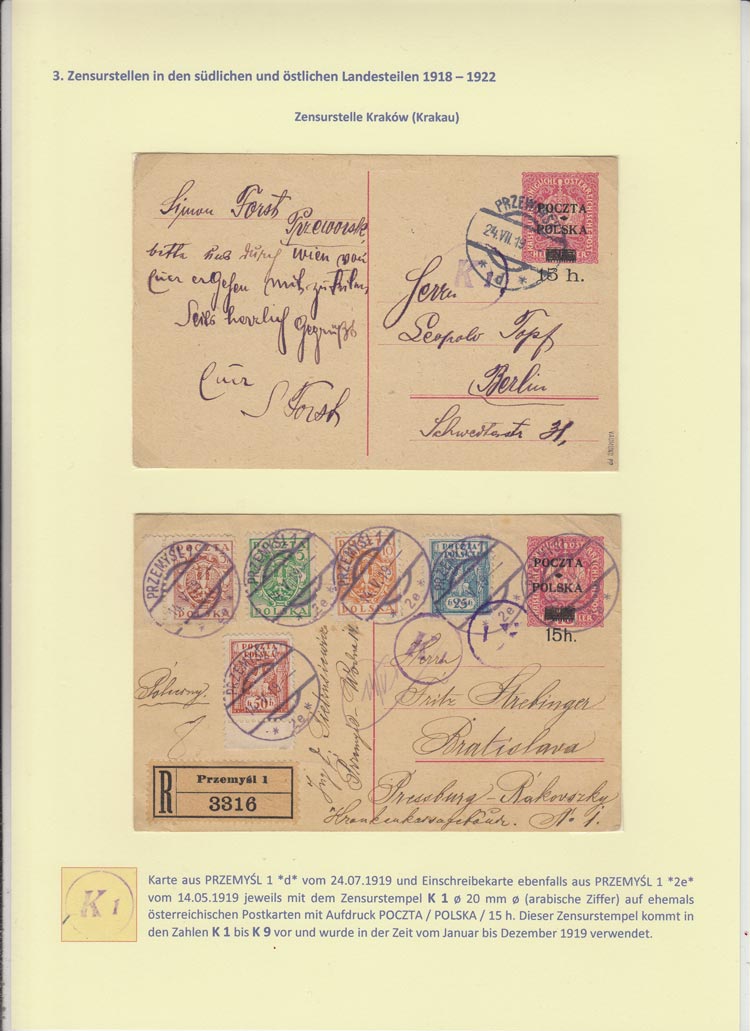 3. Zensurstellen in den südlichen und östlichen Landesteilen 1918 – 1922
Zensurstelle Kraków (Krakau)
Simon Forst
Przeworsk
bitte uns durch Wien von
Euer ergehen mit zu teilen,
Seits herzlich Gegrüßt
Euer
S Forst
PRZEMYŚL
24.VII.19
*1d*
K 1
POCZTA
POLSKA
15 h.
Herrn
Leopold Topf
Berlin
Schwedterstr 31,
PRZEMYŚL 1
2e*
POCZTA
POLSKA
PRZEMYŚL 1
2e*
POLSKA
PRZEMYŚL 1
10
POLSKA
1 POCZTA
POLSKA
25
2e*
POCZTA
POLSKA
15h.
1 POCZTA
50
2e*
K
Herrn
Fritz Strebinger
Bratislava
Pressburg-Rakovszky
No 1.
R
Przemyśl 1
3316
K 1
Karte aus PRZEMYŚL 1 *d* vom 24.07.1919 und Einschreibekarte ebenfalls aus PRZEMYŚL 1 *2e*
vom 14.05.1919 jeweils mit dem Zensurstempel K 1 ø 20 mm ø (arabische Ziffer) auf ehemals
österreichischen Postkarten mit Aufdruck POCZTA / POLSKA / 15 h. Dieser Zensurstempel kommt in
den Zahlen K 1 bis K 9 vor und wurde in der Zeit vom Januar bis Dezember 1919 verwendet.